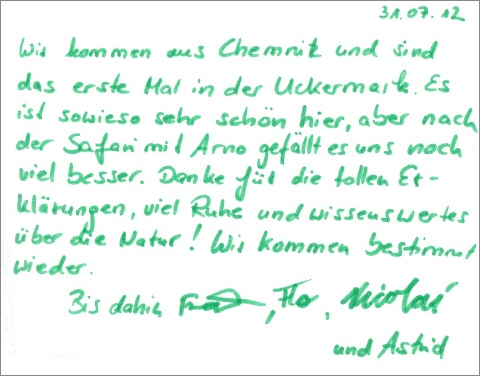 31.07.12
Wir kommen aus Chemnitz und sind
das erste Mal in der Uckermark. Es
ist sowieso sehr schön hier, aber nach
der Safari mit Arno gefällt es uns noch
viel besser. Danke für die tollen Er-
klärungen, viel Ruhe und wissenswertes
über die Natur! Wir kommen bestimmt
wieder.
Bis dahin , Flo, Nicolai
und Astrid